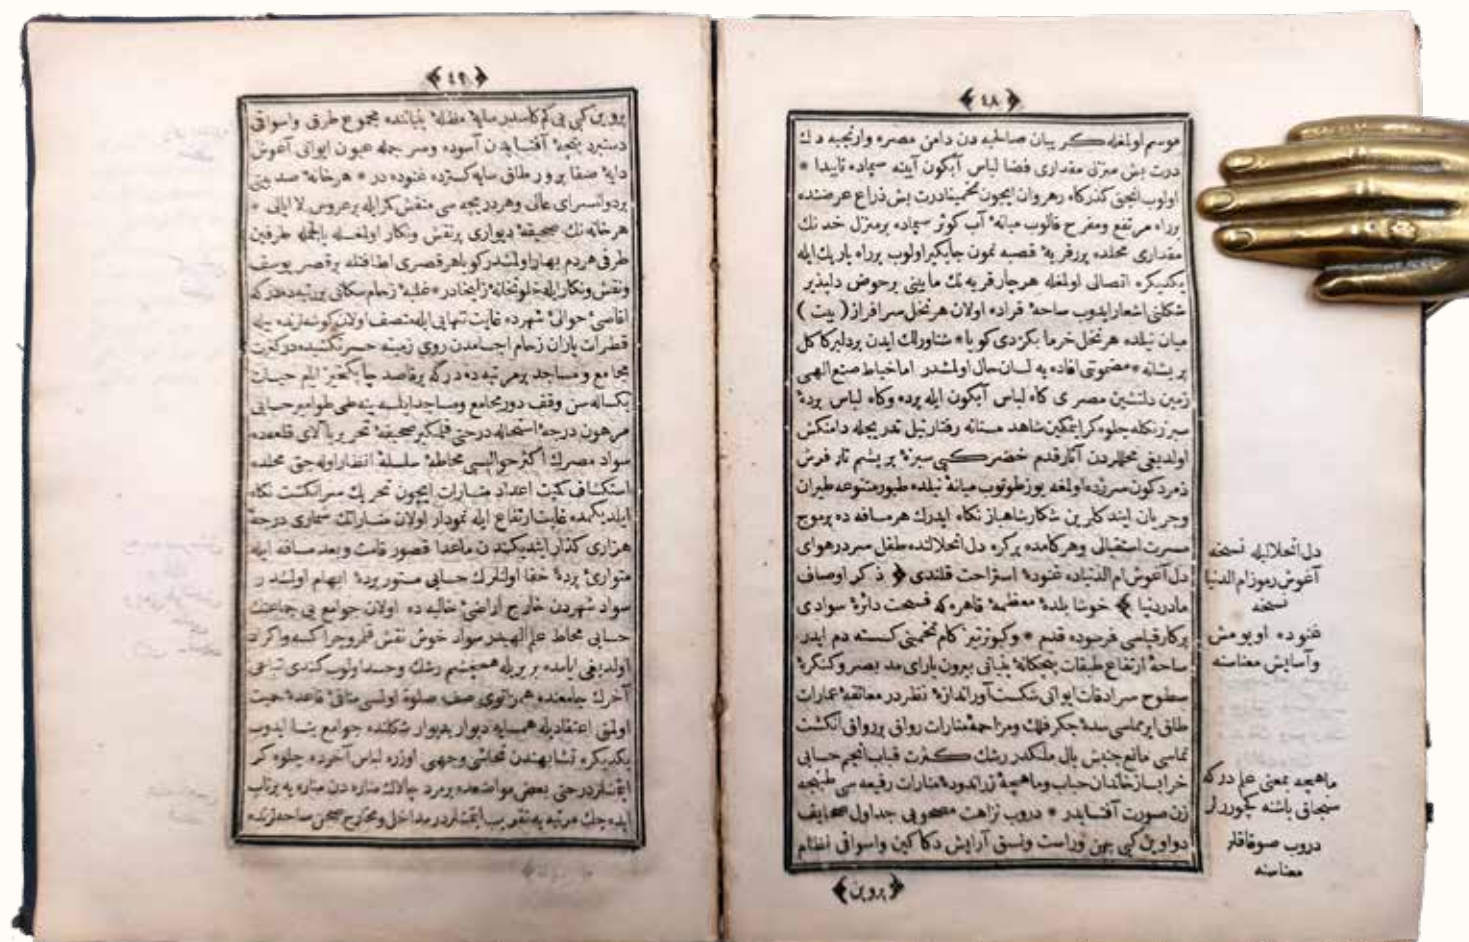 ﴿ ٤٨ ﴾
موسم اولغله كر يبان صالحيه دن دامن مصره وارنجيه دك
درت بش منزل مقدارى فضا لباس آبكون آيينه سيماده ناپيدا *
اولوب انجق كذركاه رهروان ايچون تخمينا درت بش ذراع عرضنده
برراه مرتفع ومفرح قالوب ميانهٔ آب كوثر سيماده برمنزل خدنك
مقدارى محلده بررقريهٔ قصبه نمون جايكير اولوب برراه باريك ايله
يكديكره اتصالى اولغله هرچار قريه نك مابينى برحوض دلپذير
شكلنى اشعار ايدوب ساحهٔ قراده اولان هر نخل سرافراز ( بيت )
ميان نيلده هر نخل خرما بكزدى كويا * شناورلك ايدن بردلبر كاكل
پريشانه * مضمونى افاده يه لسان حال اولمشدر اما خياط صنع الهى
زمين دلنشين مصرى كاه لباس آبكون ايله پرده وكاه لباس پردهٔ
سبزرنكله جلوه كر ايتمكين شاهد مستانه رفتار نيل تدريجله دامنكش
اولديغى محللردن آثار قدم خضر كبى سبزهٔ بريشم تار فرش
زمردكون سرزده اولغه يوز طوتوب ميانهٔ نيلده طيور متنوعه طيران
وجريان ايتدكلرين شكار شاهباز نكاه ايدرك هر مسافه ده برموج
مسرت استقبالى وهركامده بركره دل انحلالنده طفل سردرهواى
دل آغوش ام الدنياده غنودهٔ استراحت قلندى ﴿ ذكر اوصاف
مادر دنيا ﴾ خوشا بلدهٔ معظمهٔ قاهره كه فسحت دائرهٔ سوادى
پركار قياسى فرسوده قدم * وكبوتر تيزكام تخمينى كسسته دم ايدر
ساحهٔ ارتفاع طبقات پنجكانهٔ بنياتى بيرون ياراى مد بصر وكنكرهٔ
سطوح سرادقات ايوانى شكست آور اندازهٔ نظردر معانقهٔ عمارات
طاق ابر مماسى سدهٔ جكر فلك ومزاحمهٔ منارات رواق بررواق انكشت
تماسى مانع جنبش بال ملكدر رشك كثرت قباب انجم حسابى
خراب ساز خاندان حباب وماهچهٔ زراندودهٔ منارات رفيعه سى طبنجه
زن صورت آفتابدر * دروب نزاهت مصحوبى جداول صحايف
دواوين كبى چين وراست ونسق آرايش دكاكين واسواقى نظام
﴿ پروين ﴾
دل انحلاليله نسخه
آغوش رموز ام الدنيا
نسخه
غنوده اويومش
وآسايش معناسنه
ماهچه بمعنى علم دركه
سنجاق باشنه كچوررلر
دروب صوقاقلر
معناسنه
﴿ ٤٩ ﴾
پروين كبى بى كم كاستدر سايهٔ مظلهٔ بنياننده مجموع طرق واسواقى
دستبرد پنجهٔ آفتابدن آسوده وسر جمله عيون ايوانى آغوش
دايهٔ صفا پرور طاق سايه كسترده غنوده در * هرخانهٔ صد بيتى
بردولتسراى عالى وهر دريچه سى منقش كرايله برعروس لاابالى *
هرخانه نك صحيفهٔ ديوارى پرنقش ونكار اولغله بالجمله طرفين
طرقى هردم بهار اولمشدر كويا هر قصرى اطافتله برقصر يوسف
ونقش ونكار ايله خلوتخانهٔ زليخادر * غلبهٔ زحام سكانى بررتبه ده در كه
اقاصئ حوالئ شهرده غايت تنهايى ايله متصف اولان كوشه لرنده بيله
قطرات باران زحام اجسامدن روى زمينه حسرتكشيده در كثرت
مجامع ومساجد برمرتبه ده در كه برقاصد چابكخيز ايلم حيات
يكساله سن وقف دور مجامع ومساجد ايلسه ينه طى طوامير حسابى
مرهون درجهٔ استحاله در حتى قلمكير صحيفهٔ تحرير بالاى قلعه ده
سواد مصرك اكثر حواليسى محاطهٔ سلسلهٔ انظار اوله جق محلده
استكشاف كميت اعداد منارات ايچون تحريك سرانكشت نكاه
ايلديكمده غايت ارتفاع ايله نمودار اولان مناراتك شمارى درجهٔ
هزارى كذار ايتديكندن ماعدا قصور قامت وبعد مسافه ايله
متوارئ پردهٔ خفا اولنلرك حسابى مستور پردهٔ ابهام اولمشدر
سواد شهردن خارج اراضئ خاليه ده اولان جوامع بى جماعتك
حسابى محاط علم الهيدر سواد خوش نقش قلمرو چراكسه واكراد
اولديغى ايامده بربريله همچشم رشك وحسد اولوب كندى تباعى
آخرك جامعنده همزانوى صف صلوة اولسى منافئ قاعدهٔ حميت
اولمق اعتقاديله همسايه ديوار بديوار شكلنده جوامع بنا ايدوب
يكديكره تشابهندن تحاشى وجهى اوزره لباس آخرده جلوه كر
ايتمشلردر حتى بعض مواضعده برمرد چالاك مناره دن مناره يه پرتاب
ايده جك مرتبه يه تقريب ايتمشلردر مداخل ومخارج صحن ساحه لرنده